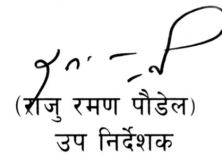 (राजु रमण पौडेल)
उप निर्देशक